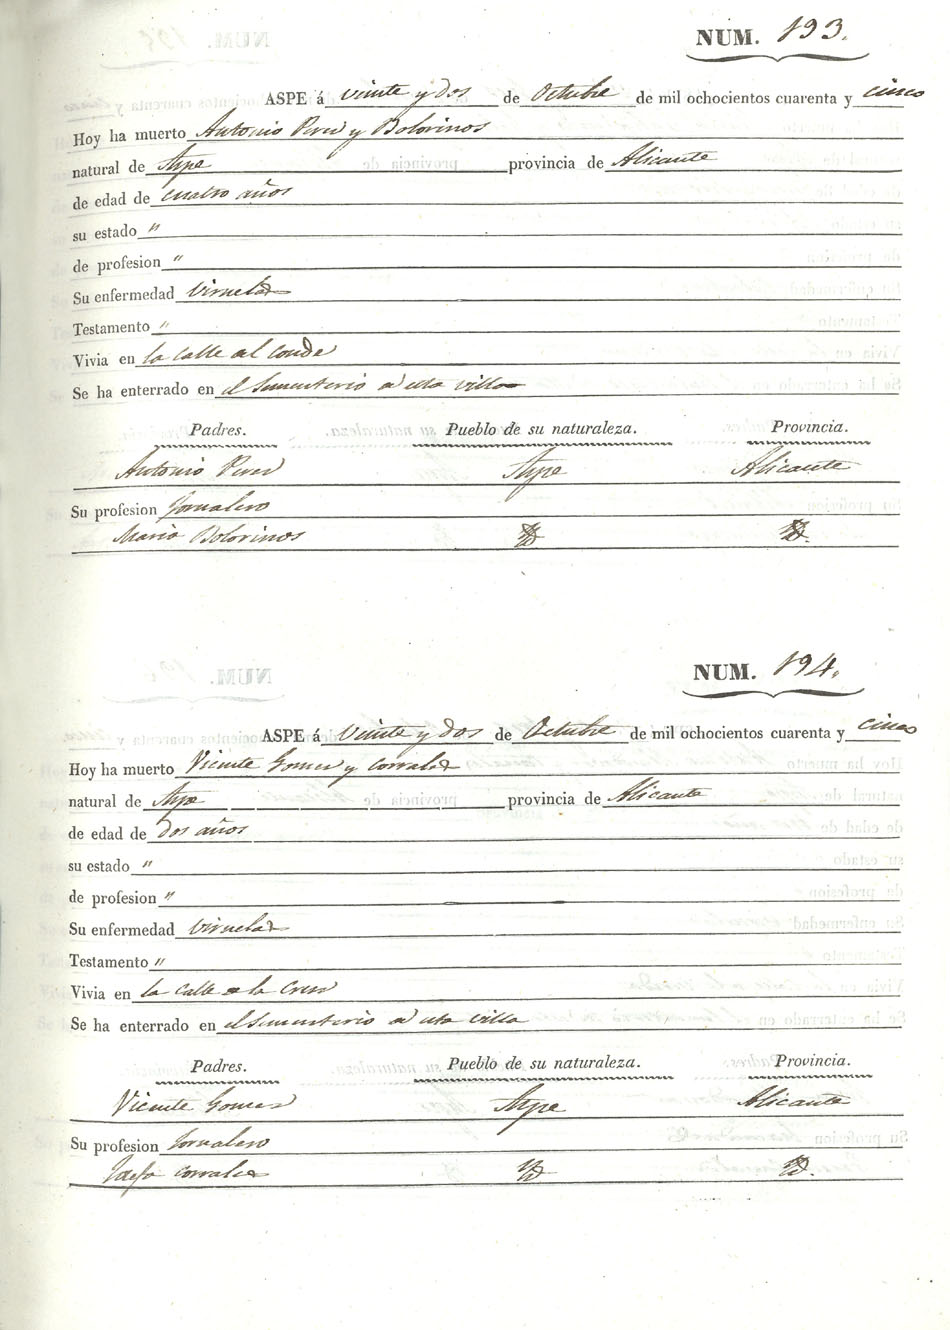 NUM. 193.
ASPE á veinte y dos de Octubre de mil ochocientos cuarenta y cinco
Hoy ha muerto Antonio Perez y Bolorinos
natural de Aspe provincia de Alicante
de edad de cuatro años
su estado "
de profesion "
Su enfermedad Viruelas
Testamento "
Vivia en la calle del conde
Se ha enterrado en el Sementerio de esta villa
Padres. Pueblo de su naturaleza. Provincia.
Antonio Perez Aspe Alicante
Su profesion Jornalero
Maria Bolorinos
NUM. 194.
ASPE á veinte y dos de Octubre de mil ochocientos cuarenta y cinco
Hoy ha muerto Vicente Gomez y Corrales
natural de Aspe provincia de Alicante
de edad de dos años
su estado "
de profesion "
Su enfermedad Viruelas
Testamento "
Vivia en la calle de la Cruz
Se ha enterrado en el Sementerio de esta villa
Padres. Pueblo de su naturaleza. Provincia.
Vicente Gomez Aspe Alicante
Su profesion Jornalero
Corrales